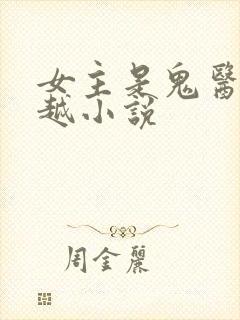 女主是鬼醫
越小說
周金麗